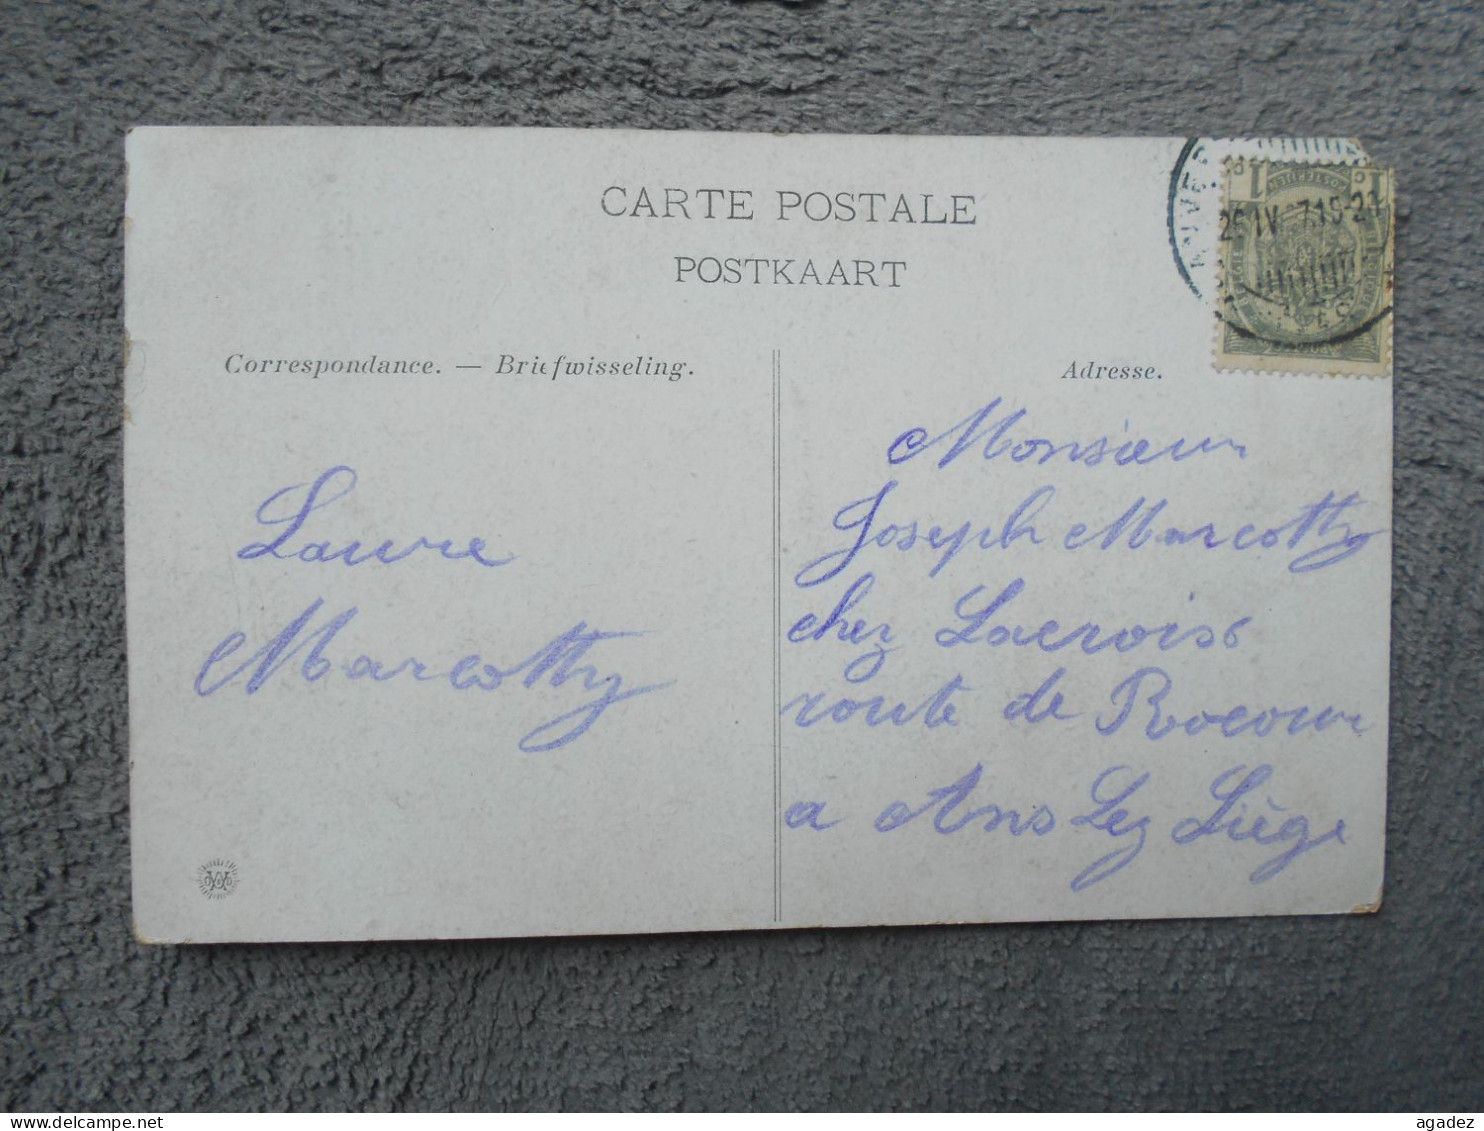 CARTE POSTALE
POSTKAART
Correspondance. — Briefwisseling.
Adresse.
Laure
Marcotty
Monsieur
Joseph Marcotty
chez Lacroix
route de Rocour
a Ans Lez Liège
1 1
agadez